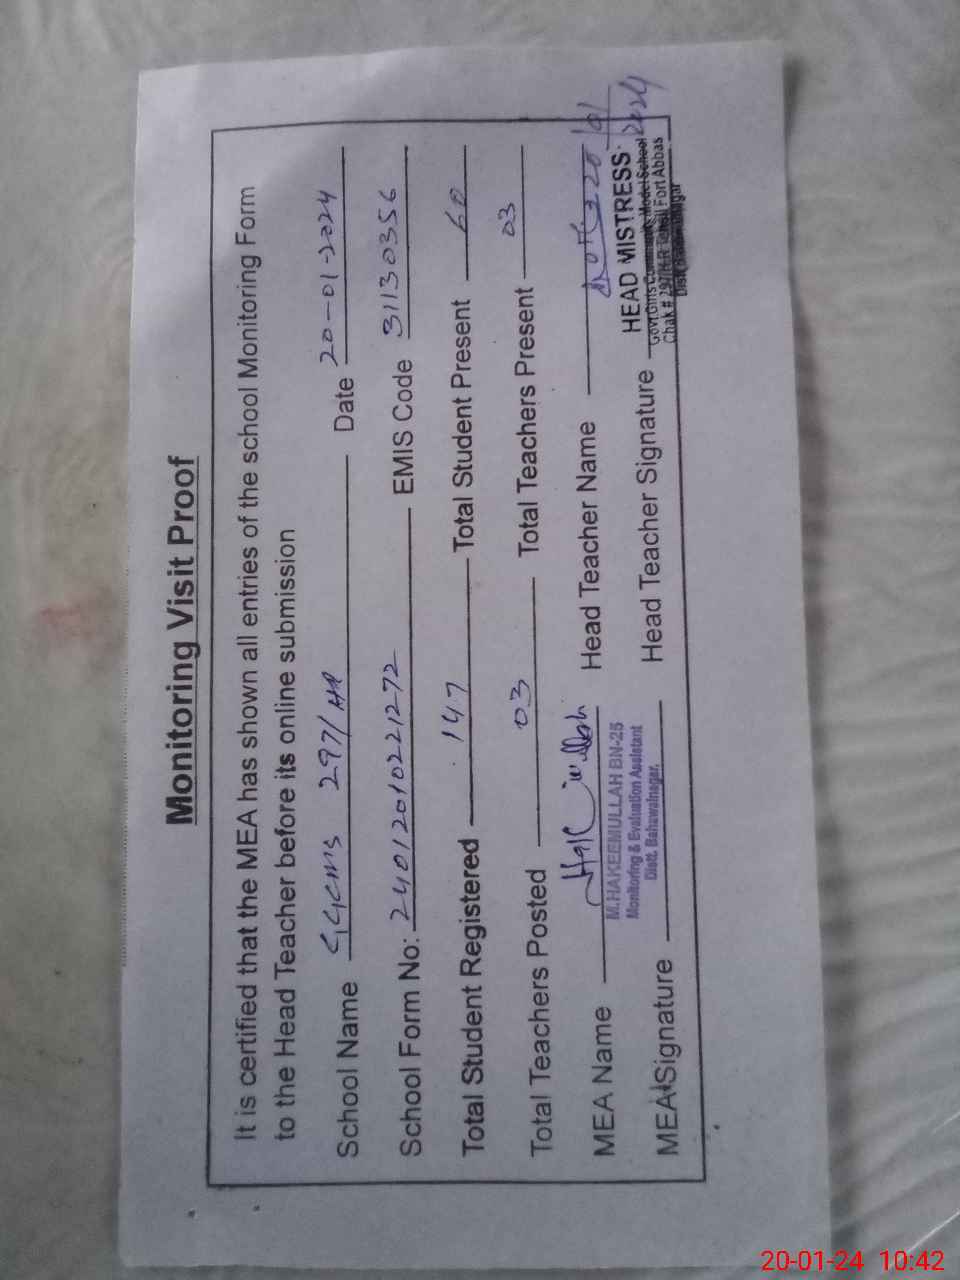 Monitoring Visit Proof
It is certified that the MEA has shown all entries of the school Monitoring Form
to the Head Teacher before its online submission
School Name GGCMS 297/HR Date 20-01-2024
School Form No: 24012010221272 EMIS Code 31130356
Total Student Registered 147 Total Student Present 60
Total Teachers Posted 03 Total Teachers Present 03
MEA Name Head Teacher Name
M.HAKEEMULLAH BN-25
Monitoring & Evaluation Assistant
Distt. Bahawalnagar.
MEA Signature Head Teacher Signature
20/01/2024
HEAD MISTRESS
Govt Girls Community Model School
Chak # 297/H.R Tehsil Fort Abbas
20-01-24 10:42